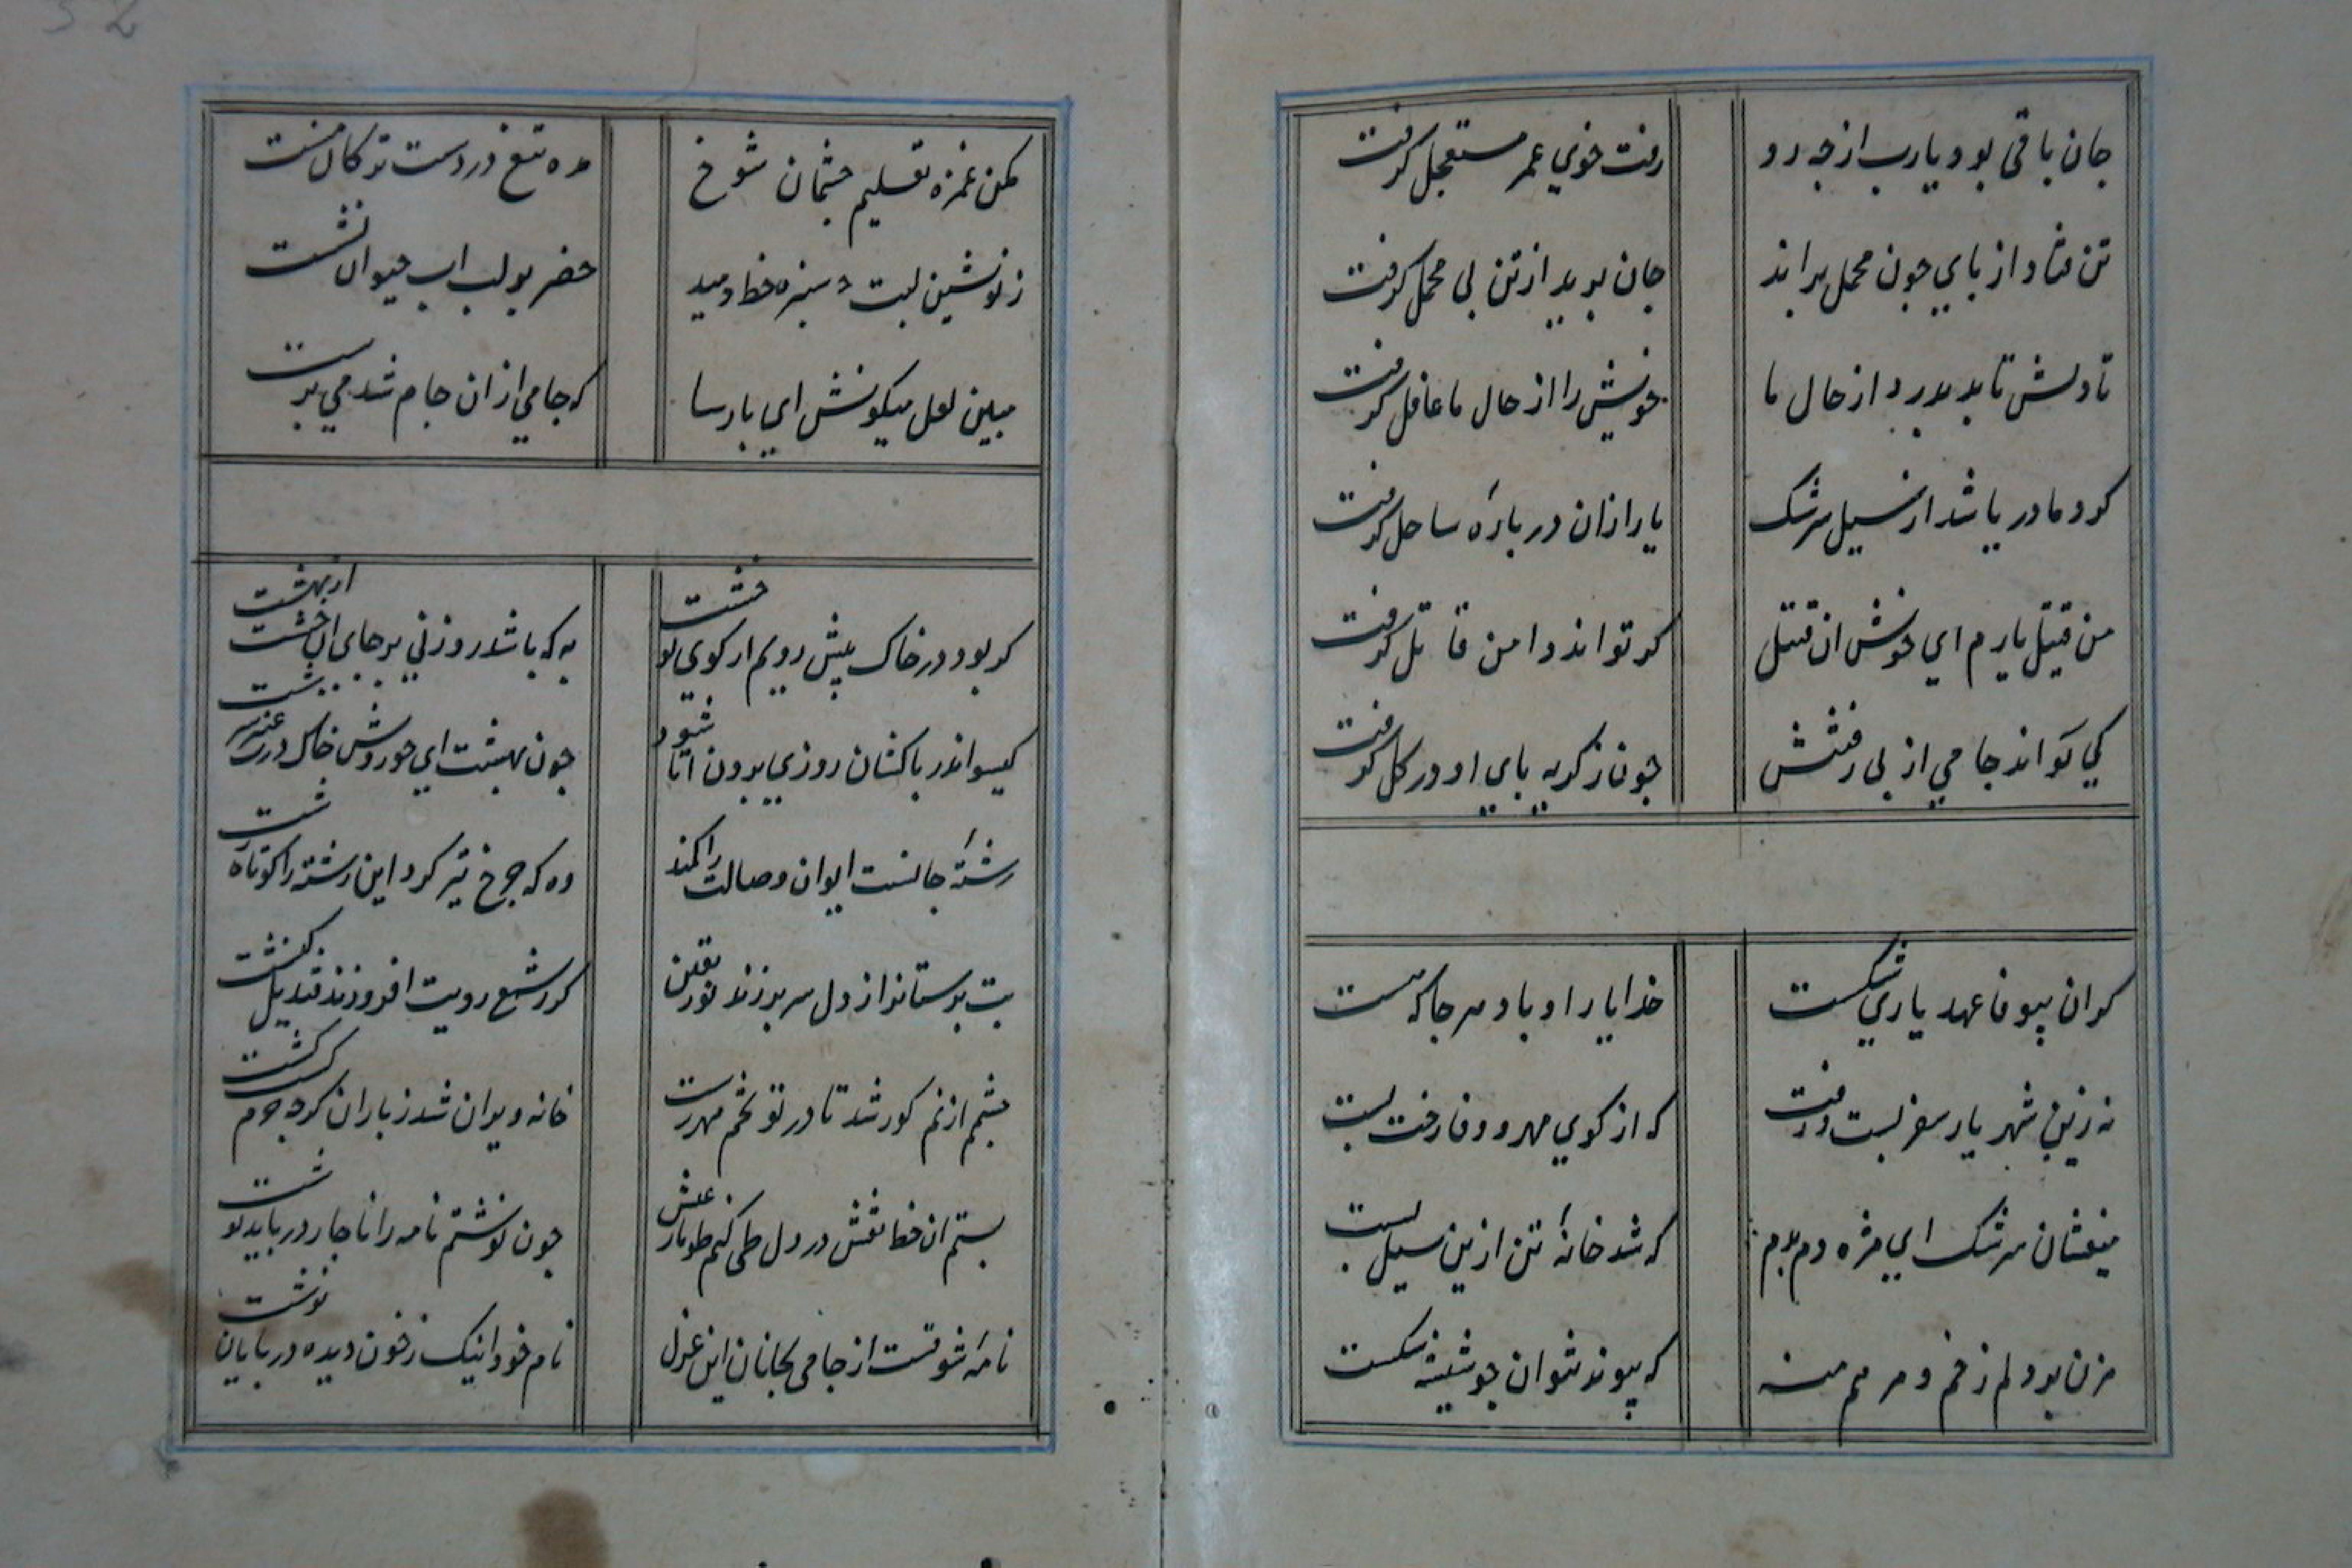 جان باقی بود یارب از چه رو
رفت خوی عمر مستعجل گرفت
تن فتاد از پای چون محمل براند
جان برید از تن پی محمل گرفت
تا دلش ناید بدرد از حال ما
خویش را از حال ما غافل گرفت
گرد ما دریا شد از سیل سرشک
یار ازان دریا ره ساحل گرفت
من قتیل یارم ای خوش ان قتیل
کو تواند دامن قاتل گرفت
کی تواند جامی از پی رفتنش
چون ز گریه پای او در گل گرفت
گر ان بیوفا عهد یاری شکست
خدایا را او باد هر جا که هست
نه زین شهر یار سفر بست و رفت
که از کوی مهر و وفا رخت بست
میفشان سرشک ای مژه دم بدم
که شد خانه تن ازین سیل پست
مزن بر دلم زخم و مرهم منه
که پیوند نتوان چو شیشه شکست
مکن غمزه تعلیم چشمان شوخ
مده تیغ در دست ترکان مست
ز نوشین لبت سبزه خط دمید
خضر بر لب اب حیوان نشست
مبین لعل میگونش ای پارسا
که جامی ازان جام شد می پرست
گر بود در خاک پیش رویم از کوی تو خشت
به که باشد روزنی بر جای ان خشت از بهشت
گیسو اندر پا کشان روزی برون آ تا شود
چون بهشت ای حوروش خاک درت عنبر سرشت
رشته جانست ایوان وصالت را کمند
وه که چرخ تیز کرد این رشته را کوتاه رشت
بت پرستانرا از دل سر برزند نور یقین
گر ز شمع رویت افروزند قندیل کنشت
چشم از نم کور شد تا در تو تخم مهر رست
خانه ویران شد ز باران گرچه خرم گشت کشت
بستم ان خط نقش در دل طی کنم طومار عیش
چون نوشتم نامه را ناچار در باید نوشت
نامه شوقست از جامی بجانان این غزل
نام خود اینک ز خون دیده در پایان نوشت